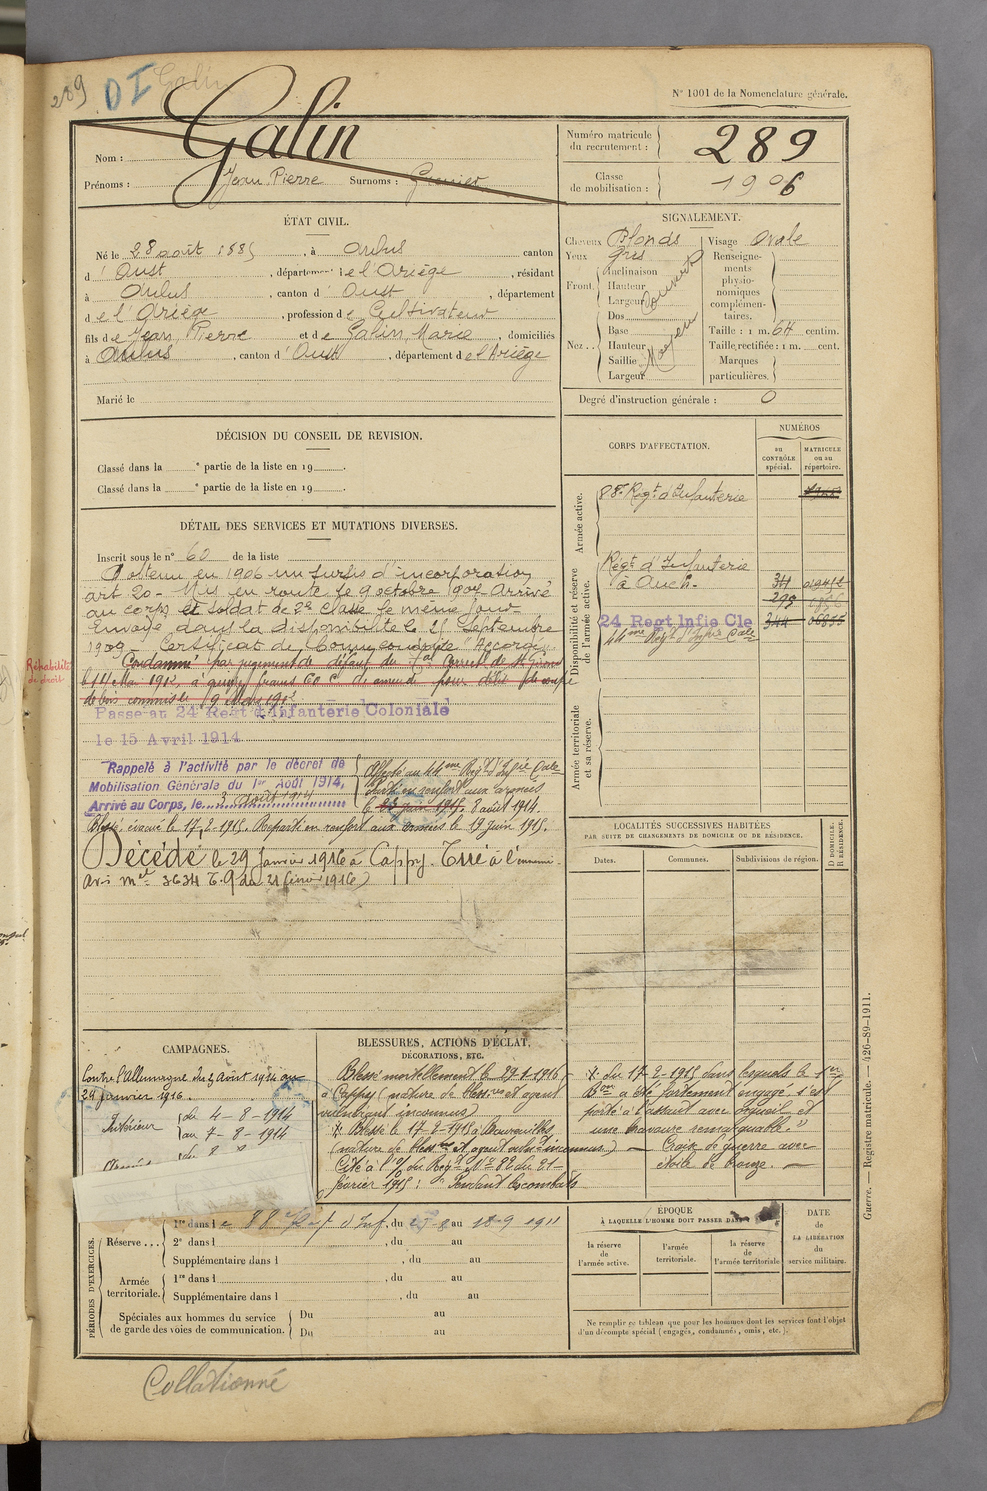 289 DI Galin
N° 1001 de la Nomenclature générale.
Nom : Galin
Prénoms : Jean Pierre Surnoms : Grenier
Numéro matricule du recrutement : 289
Classe de mobilisation : 1906
ÉTAT CIVIL.
Né le 28 août 1885, à Aulus canton
d'Oust, département de l'Ariège, résidant
à Aulus, canton d'Oust, département
de l'Ariège, profession de Cultivateur
fils de Jean Pierre et de Galin Marie, domiciliés
à Aulus, canton d'Oust, département de l'Ariège
Marié le
SIGNALEMENT.
Cheveux Blonds Visage Ovale
Yeux Gris
Front Inclinaison Hauteur Largeur Couvert
Nez Dos Base Hauteur Saillie Largeur Moyen
Renseignements physionomiques complémentaires.
Taille : 1 m. 64 centim.
Taille rectifiée : 1 m. cent.
Marques particulières.
Degré d'instruction générale : 0
DÉCISION DU CONSEIL DE REVISION.
Classé dans la e partie de la liste en 19 .
Classé dans la e partie de la liste en 19 .
CORPS D'AFFECTATION.
NUMÉROS
au CONTRÔLE spécial.
MATRICULE ou au répertoire.
Armée active.
88e Régt d'Infanterie
Disponibilité et réserve de l'armée active.
Régt d'Infanterie
à Auch.
24 Regt Infie Cle
44me Régt d'Infie Cale
Armée territoriale et sa réserve.
DÉTAIL DES SERVICES ET MUTATIONS DIVERSES.
Inscrit sous le n° 60 de la liste
Obtenu en 1906 un sursis d'incorporation
art. 20 - Mis en route le 9 octobre 1907 Arrivé
au corps et soldat de 2e classe le même jour
Envoyé dans la disponibilité le 25 Septembre
1909 - Certificat de Bonne conduite "Accordé"
Réhabilité de droit.
Condamné par jugement de défaut du
de bois commis le 9 Mars 1912
Passé au 24 Regt d'Infanterie Coloniale
le 15 Avril 1914
Rappelé à l'activité par le décret de
Mobilisation Générale du 1er Août 1914,
Arrivé au Corps, le 3 août 1914
Affecté au 44me Régt d'Infie Cale
Parti en renfort aux armées
le 23 juin 1915. 8 août 1914.
Blessé, évacué le 17-2-1915. Reparti en renfort aux armées le 19 juin 1915.
Décédé le 29 Janvier 1916 à Cappy. Tué à l'ennemi.
Avis mel 3634 T.9 du 21 février 1916)
LOCALITÉS SUCCESSIVES HABITÉES
PAR SUITE DE CHANGEMENTS DE DOMICILE OU DE RÉSIDENCE.
Dates. Communes. Subdivisions de région. D DOMICILE. R RÉSIDENCE.
CAMPAGNES.
Contre l'Allemagne du 3 Août 1914 au
29 janvier 1916.
Intérieur du 4-8-1914
au 7-8-1914
BLESSURES, ACTIONS D'ÉCLAT,
DÉCORATIONS, ETC.
Blessé mortellement le 29-1-1916
à Cappy (nature de blessures et agent
vulnérant inconnus)
X Blessé le 17-2-1915 à
(nature de blessre et agent vulnt inconnus) —
Cité à l'O/ du Régt N° 82 du 21-
février 1915 : "Pendant les combats
X du 17-2-1915 dans lesquels le 1er
Bon a été fortement engagé, s'est
porté à l'assaut avec orgueil et
une bravoure remarquable."
— Croix de guerre avec
étoile de bronze. —
PÉRIODES D'EXERCICES.
Réserve... 1re dans le 88e Régt d'Inf. du 27-8 au 18-9 1911
2e dans l , du au
Supplémentaire dans l , du au
Armée territoriale. 1re dans l , du au
Supplémentaire dans l , du au
Spéciales aux hommes du service de garde des voies de communication. Du au
Du au
ÉPOQUE
À LAQUELLE L'HOMME DOIT PASSER DANS
la réserve de l'armée active.
l'armée territoriale.
la réserve de l'armée territoriale
DATE de LA LIBÉRATION du service militaire.
Ne remplir ce tableau que pour les hommes dont les services font l'objet
d'un décompte spécial (engagés, condamnés, omis, etc.).
Guerre. — Registre matricule. — 426-89-1911.
Collationné